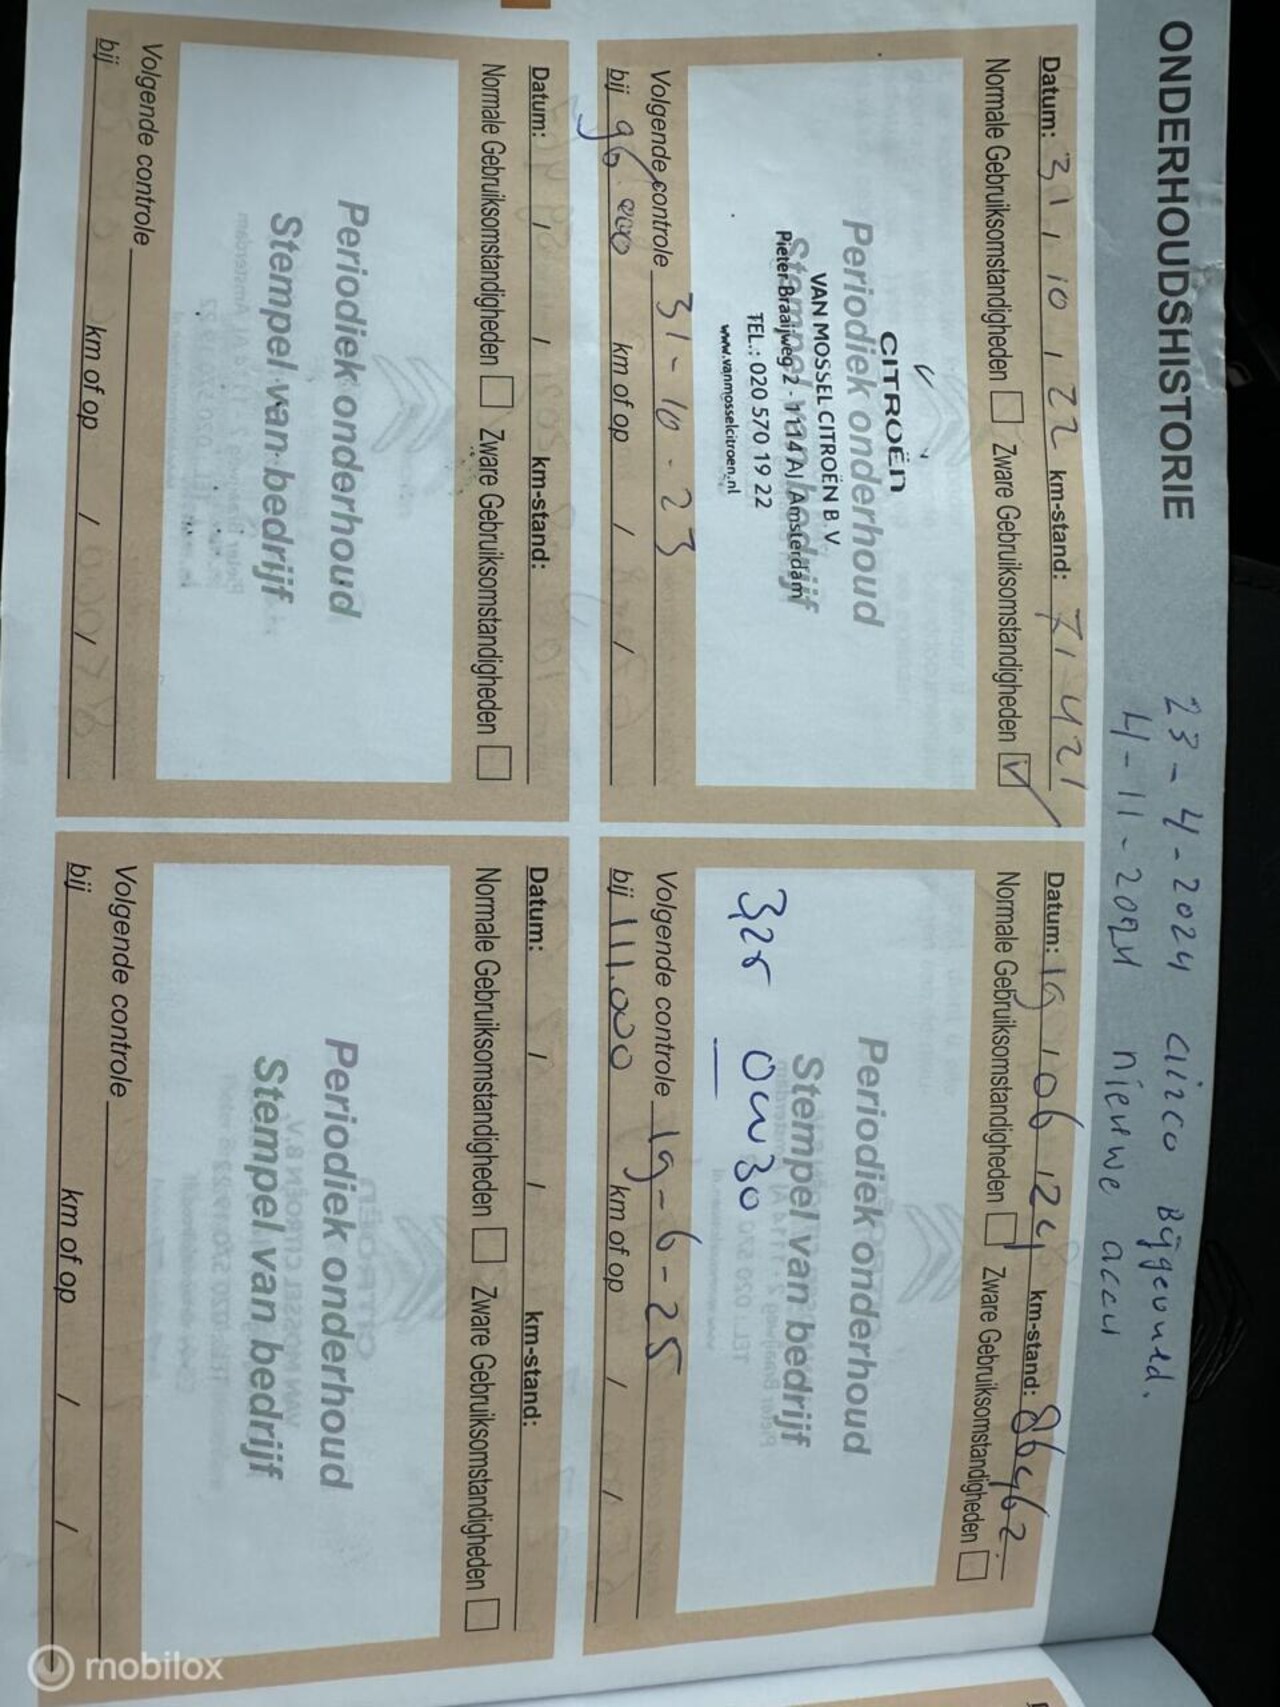 ONDERHOUDSHISTORIE
23-4-2024 airco Bijgevuld.
4-11-2024 nieuwe accu
Datum: 31 / 10 / 22 km-stand: 71421
Normale Gebruiksomstandigheden Zware Gebruiksomstandigheden
Periodiek onderhoud
Stempel van bedrijf
CITROËN
VAN MOSSEL CITROËN B.V.
Pieter Braaijweg 2 - 1114 AJ Amsterdam
TEL.: 020 570 19 22
www.vanmosselcitroen.nl
Volgende controle 31-10-23
bij 96.000 km of op / /
Datum: 19 / 06 / 24 km-stand: 86462
Normale Gebruiksomstandigheden Zware Gebruiksomstandigheden
Periodiek onderhoud
Stempel van bedrijf
0W30
Volgende controle 19-6-25
bij 111.000 km of op / /
Datum: / / km-stand:
Normale Gebruiksomstandigheden Zware Gebruiksomstandigheden
Periodiek onderhoud
Stempel van bedrijf
Volgende controle
bij km of op / /
Datum: / / km-stand:
Normale Gebruiksomstandigheden Zware Gebruiksomstandigheden
Periodiek onderhoud
Stempel van bedrijf
Volgende controle
bij km of op / /
mobilox